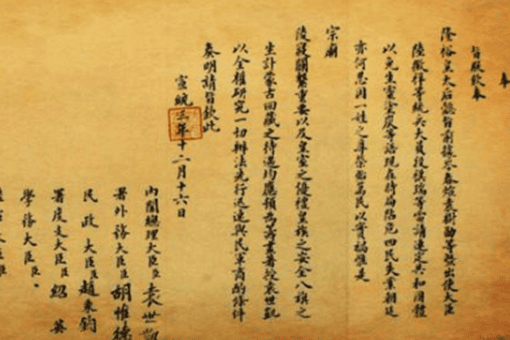 奉
旨朕欽奉
隆裕皇太后懿旨前據岑春煊袁樹勛等暨出使大臣
陸徵祥等統兵大員段祺瑞等電請速定共和國體
以免生靈塗炭等語現在時局阽危四民失業朝廷
亦何忍因一姓之尊榮貽萬民以實禍惟是
宗廟
陵寢關繫重要以及皇室之優禮皇族之安全八旗之
生計蒙古回藏之待遇均應預為籌畫著授袁世凱
以全權研究一切辦法先行迅速與民軍商酌條件
奏明請旨欽此
宣統三年十二月十六日
內閣總理大臣臣袁世凱
署外務大臣臣胡惟德
民政大臣臣趙秉鈞
署度支大臣臣紹英
學務大臣臣